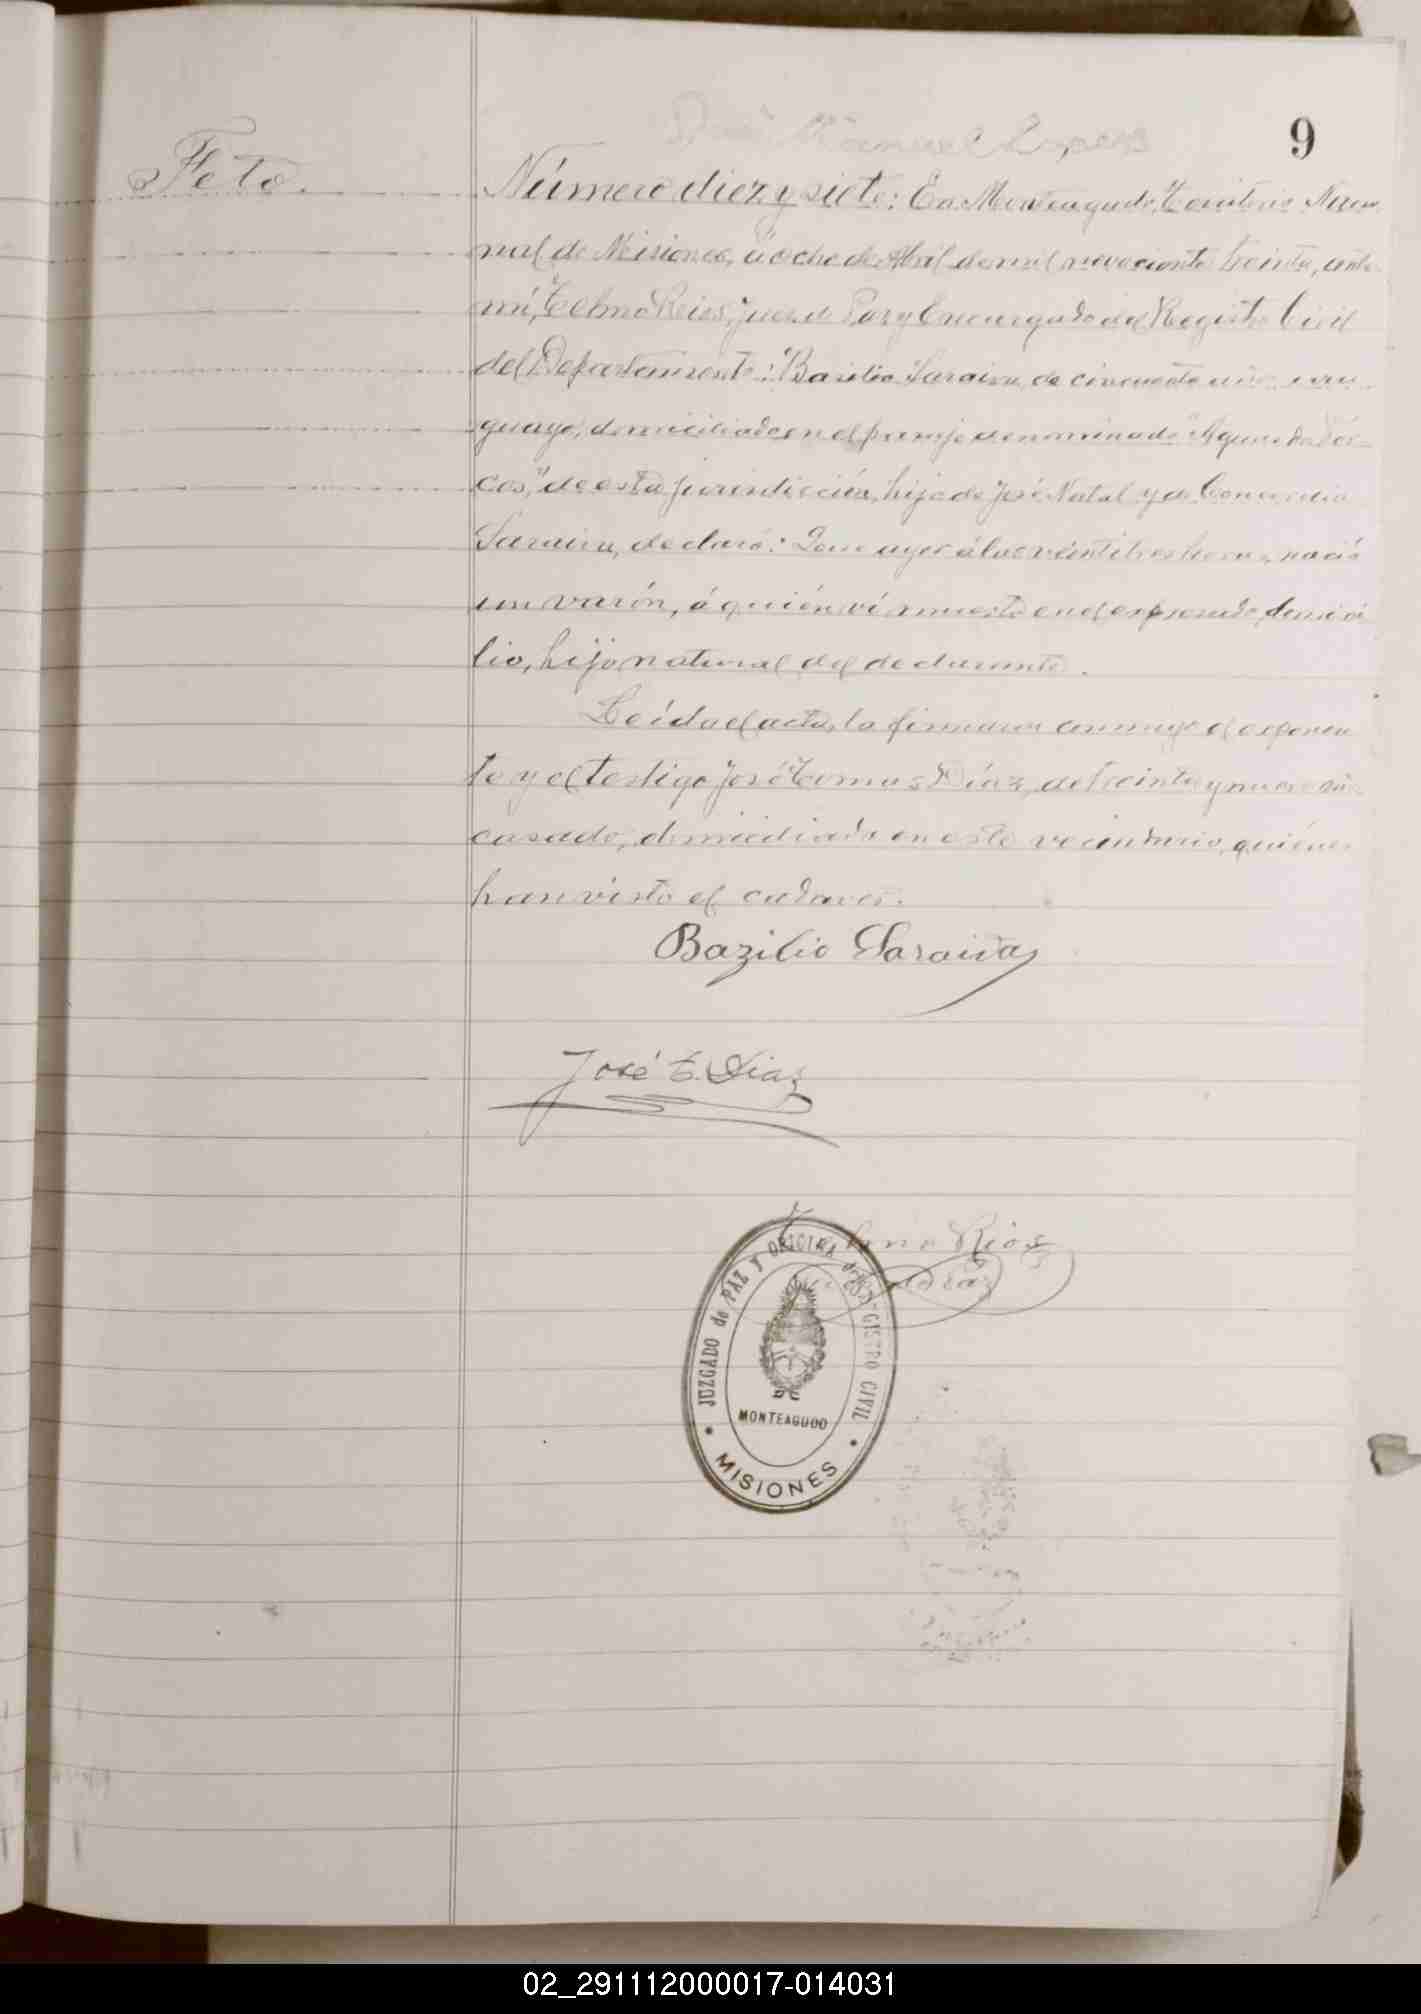 9
Feto.
Número diez y siete: En Monteagudo, Territorio Nacio
nal de Misiones, á ocho de Abril de mil novecientos treinta, ante
mí, Telmo Rios, Juez de Paz y Encargado del Registro Civil
del Departamento: Basilio Saraiva, de cincuenta años, uru-
guayo, domiciliado en el paraje denominado
cos," de esta jurisdicción, hijo de José Natal y de
Saraiva, declaró: Que ayer á las veintitres horas, nació
un varón, á quién ví muerto en el expresado domici
lio, hijo natural del declarante.
Leída el acta, la firmaron conmigo el exponen
te y el testigo José Tomas Díaz, de treinta y nueve
casado, domiciliado en este vecindario, quiénes
han visto el cadaver.
Bazilio Saraiva
José T. Diaz
Telmo Rios
JUZGADO de PAZ y OFICINA del REGISTRO CIVIL
DE
MONTEAGUDO
MISIONES
02_291112000017-014031